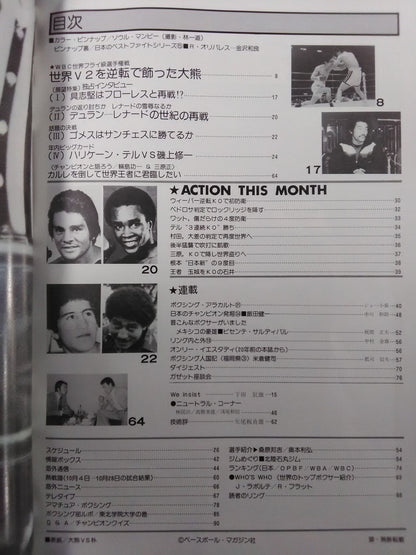 目次
■カラー・ピンナップ／ソウル・マンビー（撮影・林一道）
ピンナップ裏／日本のベストファイトシリーズ⑮■R・オリバレス—金沢和良
★WBC世界フライ級選手権戦
世界V2を逆転で飾った大熊 8
〈展望特集〉独占インタビュー
(I) 具志堅はフローレスと再戦!? 17
デュランの返り討ちか レナードの雪辱なるか
(II) デュラン—レナードの世紀の再戦 20
話題の決戦
(III) ゴメスはサンチェスに勝てるか 22
年内ビッグカード
(IV) ハリケーン・テルVS磯上修一 24
〈チャンピオンと語ろう／輪島功一 & 三原正〉
カルレを倒して世界王者に君臨したい 64
8
17
20
22
64
★ACTION THIS MONTH
ウィーバー逆転KOで初防衛 30
ペドロサ判定でロックリッジを降す 32
ワット、傷だらけの4度防衛 35
テル“3連続KO”勝ち 36
村田、大差の判定で再度世界へ 34
後半猛襲で吹打に凱歌 36
三原、KOで降し世界盗りへ 38
根本“日本新”の9度目 38
王者 玉城をKOの石井 39
★連載
ボクシング・アラカルト㉑
日本のチャンピオン発掘㉔■飯田健一 48
皆こんなボクサーがいました
メキシコの豪雄■ビセンテ・サルディバル 40
リング内と外⑬ 56
オンリー・イエスタディ（20年前の本誌から） 50
ボクシング人国記（福岡県③）米倉健司 57
ダイジェスト 60
ガゼット座談会 76
We insist 15
●ニュートラル・コーナー
62
技術評 66
スケジュール 26
情報ボックス 42
国外通信 44
熱戦譜（10月4日—10月28日の試合結果） 60
海外ニュース 68
テレタイプ 67
アマチュア・ボクシング 78
ボクシング部ルポ・東北学院大学の巻
Q & A／チャンピオンクイズ 90
選手紹介▶桑原邦吉／奥本利弘 54
ジムめぐり■北陸石丸ジム 54
ランキング（日本／OPBF／WBA／WBC） 74
●WHO'S WHO（世界のトップボクサー紹介）
J・ラポルテ／R・フラット
読者のリング 68
■表紙／大熊VS朴
©ベースボール・マガジン社
禁・無断転載